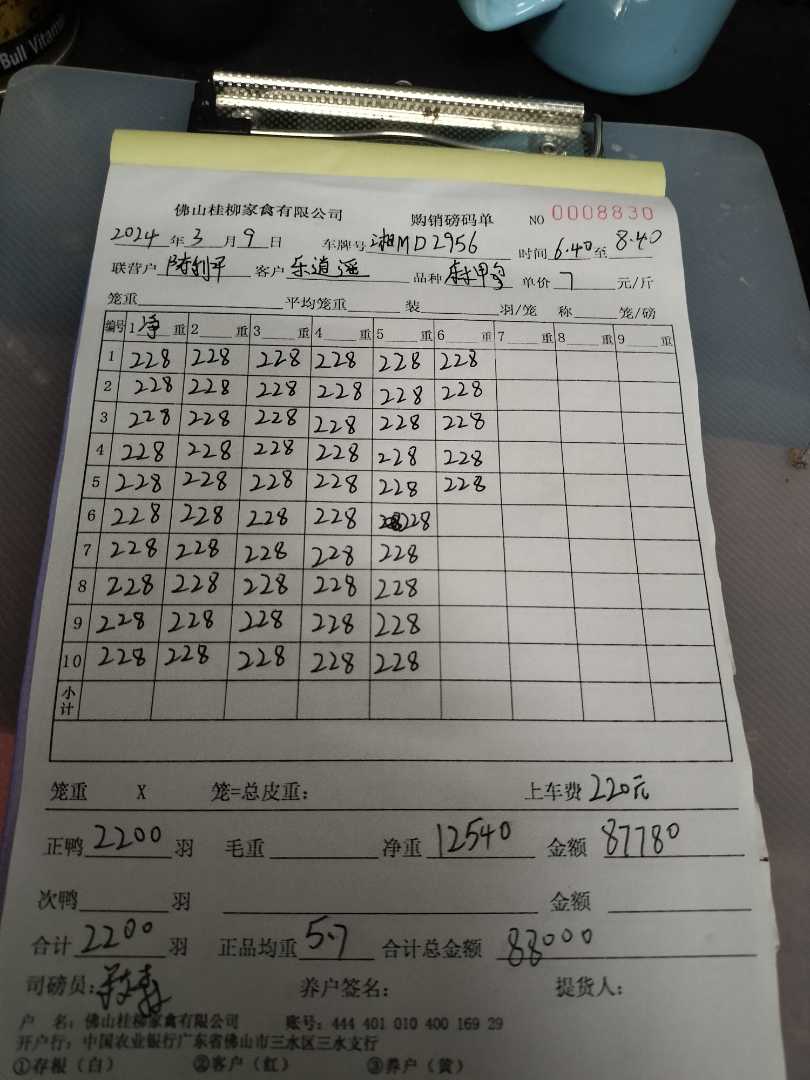 Bull Vitam
佛山桂柳家禽有限公司 购销磅码单 NO 0008830
2024 年 3 月 9 日 车牌号 湘MD2956 时间 6.40 至 8.40
联营户 陈利平 客户 乐逍遥 品种 麻甲 单价 7 元/斤
笼重 平均笼重 装 羽/笼 称 笼/磅
编号 1 净 重 2 重 3 重 4 重 5 重 6 重 7 重 8 重 9 重
1 228 228 228 228 228 228
2 228 228 228 228 228 228
3 228 228 228 228 228 228
4 228 228 228 228 228 228
5 228 228 228 228 228 228
6 228 228 228 228 228
7 228 228 228 228 228
8 228 228 228 228 228
9 228 228 228 228 228
10 228 228 228 228 228
小计
笼重 X 笼=总皮重: 上车费 220元
正鸭 2200 羽 毛重 净重 12540 金额 87780
次鸭 羽 金额
合计 2200 羽 正品均重 5.7 合计总金额 88000
司磅员: 养户签名: 提货人:
户 名: 佛山桂柳家禽有限公司 账号: 444 401 010 400 169 29
开户行: 中国农业银行广东省佛山市三水区三水支行
①存根（白） ②客户（红） ③养户（黄）